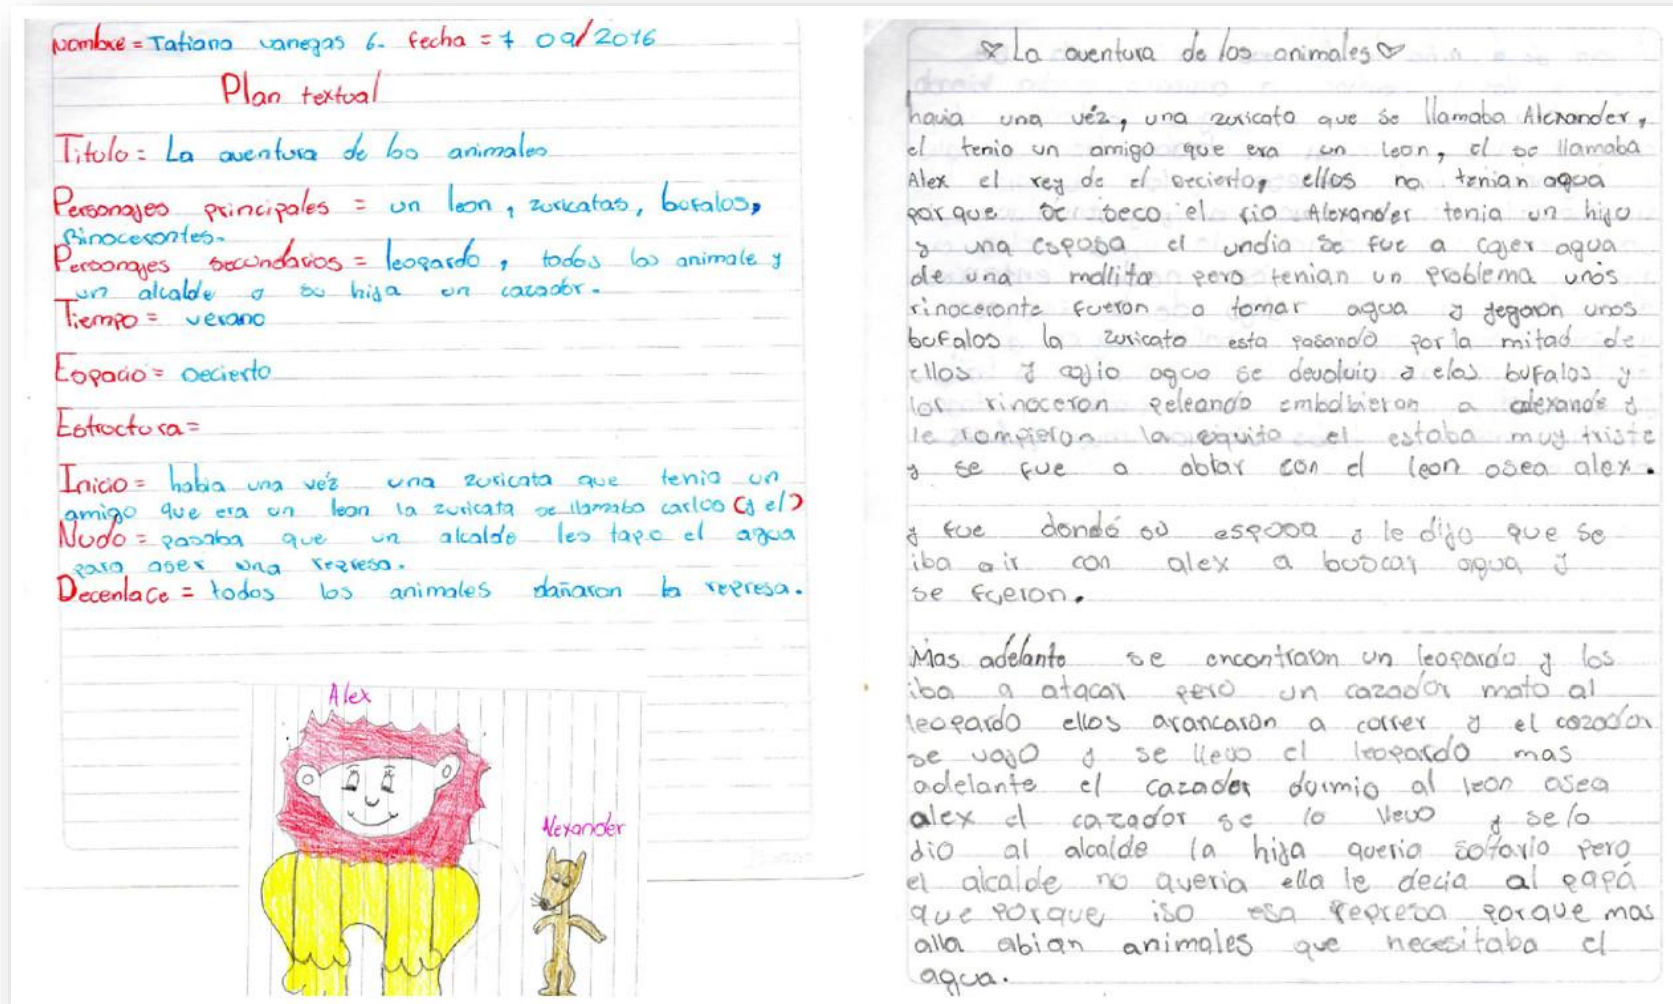 Nombre = Tatiana vanegas 6- fecha = 7 09/2016
Plan textual
Titulo = La aventura de los animales
Personajes principales = un leon, zuricatas, bufalos,
Rinocerontes.
Personajes secundarios = leopardo, todos los animale y
un alcalde y su hija un cazador.
Tiempo = verano
Espacio = Decierto
Estructura =
Inicio = habia una véz una zuricata que tenia un
amigo que era un leon la zuricata se llamaba carlos (y el)
Nudo = pasaba que un alcalde les tapo el agua
para aser una represa.
Decenlace = todos los animales dañaron la represa.
Alex
Alexander
La aventura de los animales
havia una véz, una zuricata que se llamaba Alexander,
el tenia un amigo que era un leon, el se llamaba
Alex el rey de el Decierto, ellos no tenian agua
porque se seco el rio Alexander tenia un hijo
y una esposa el undia se fue a cojer agua
de una mallita pero tenian un problema unos
rinoceronte fueron a tomar agua y yegaron unos
bufalos la zuricata esta pasando por la mitad de
ellos y cojio agua se devolvio a elos bufalos y
los rinoceron peleando embolbieron a alexande y
le rompieron la aguita el estaba muy triste
y se fue a ablar con el leon osea alex.
y fue dondé su esposa y le dijo que se
iba a ir con alex a buscar agua y
se fueron.
Mas adelante se encontraron un leopardo y los
iba a atacar pero un cazador mato al
leopardo ellos arancaron a correr y el cazador
se vajo y se llevo el leopardo mas
adelante el cazador durmio al leon osea
alex el cazador se lo llevo y selo
dio al alcalde la hija queria soltarlo pero
el alcalde no queria ella le decia al papá
que porque iso esa represa porque mas
alla abian animales que necesitaba el
agua.